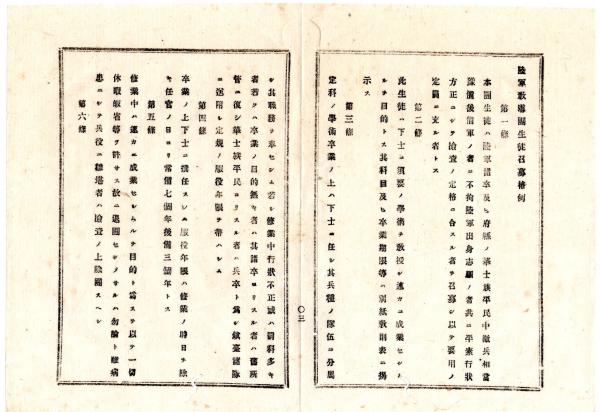 陸軍教導團生徒召募格例
第一條
本團生徒ハ陸軍諸卒及ヒ府縣ノ華士族平民中徵兵相當
豫備後備軍ノ者ニ不拘陸軍出身志願ノ者共ニ平素行狀
方正ニシテ檢査ノ定格ニ合スル者ヲ召募シ以テ要用ノ
定員ニ充ル者トス
第二條
此生徒ハ下士ニ須要ノ學術ヲ敎授シ速カニ成業セシム
ルヲ目的トス其科目及ヒ卒業期限等ハ別紙敎則表ニ揭
示ス
第三條
定科ノ學術卒業ノ上ハ下士ニ任シ其兵種ノ隊伍ニ分屬
〇三
シ其職務ヲ奉セシム若シ修業中行狀不正或ハ罰科多キ
者若クハ卒業ノ目的無キ者ハ其諸卒ヨリスル者ハ舊所
管ニ復シ華士族平民ヨリスル者ハ兵卒ト爲シ鎭臺諸隊
ニ返附シ定規ノ服役年限ヲ帶ハシム
第四條
卒業ノ上下士ニ撰任スレハ服役年限ハ修業ノ時日ヲ除
キ任官ノ日ヨリ常備七個年後備三個年トス
第五條
修業中ハ速カニ成業セシムルヲ目的ト爲スヲ以テ一切
休暇歸省等ヲ許サス故ニ退團セシメサルハ勿論ト雖病
患ニシテ兵役ニ難堪者ハ檢査ノ上除團スヘシ
第六條